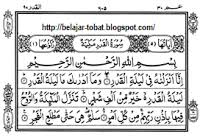 http://belajar-tobat.blogspot.com
سورة القدر مكية
بسم الله الرحمن الرحيم
إنا أنزلناه في ليلة القدر وما أدراك ما ليلة
القدر ليلة القدر خير من ألف شهر تنزل الملائكة والروح
فيها بإذن ربهم من كل أمر سلام هي حتى مطلع الفجر